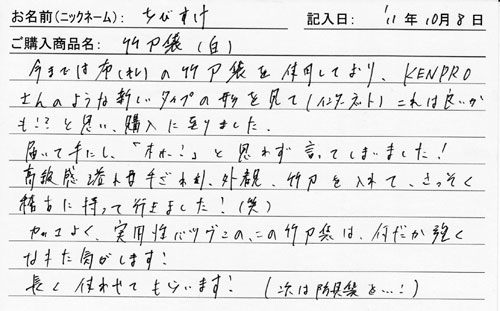 お名前(ニックネーム): ちびすけ 記入日: '11年10月8日
ご購入商品名: 竹刀袋(白)
今までは布(ｷﾚ)の竹刀袋を使用しており、KENPRO
さんのような新しいタイプの形を見て(インターネット)これは良いか
も!?と思い、購入に至りました.
届いて手にし、「オォ〜!」と思わず言ってしまいました!
高級感溢れる手ざわり、外観、竹刀を入れて、さっそく
稽古に持って行きました!(笑)
カッコよく、実用性バツグンの、この竹刀袋は、何だか強く
なれた気がします!
長く使わせてもらいます! (次は防具袋を…!)